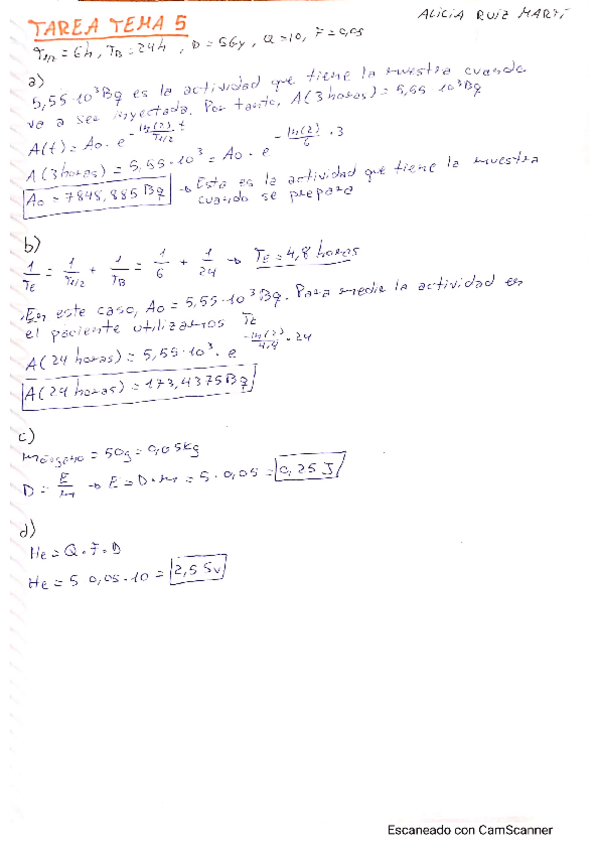 TAREA TEMA 5
ALICIA RUIZ MARTÍ
T1/2 = 6h, TB = 24h, D = 5Gy, Q = 10, F = 0,05
a)
5,55·10³Bq es la actividad que tiene la muestra cuando
va a ser inyectada. Por tanto, A(3 horas) = 5,55·10³Bq
A(t) = A₀ · e^(-ln(2)/T1/2 · t)
A(3 horas) = 5,55·10³ = A₀ · e^(-ln(2)/6 · 3)
A₀ = 7848,885 Bq → Esta es la actividad que tiene la muestra
cuando se prepara
b)
1/TE = 1/T1/2 + 1/TB = 1/6 + 1/24 → TE = 4,8 horas
En este caso, A₀ = 5,55·10³Bq. Para medir la actividad en
el paciente utilizamos TE
A(24 horas) = 5,55·10³ · e^(-ln(2)/4,8 · 24)
A(24 horas) = 173,4375Bq
c)
mórgano = 50g = 0,05kg
D = E/m → E = D·m = 5·0,05 = 0,25 J
d)
He = Q·F·D
He = 5·0,05·10 = 2,5 Sv
Escaneado con CamScanner